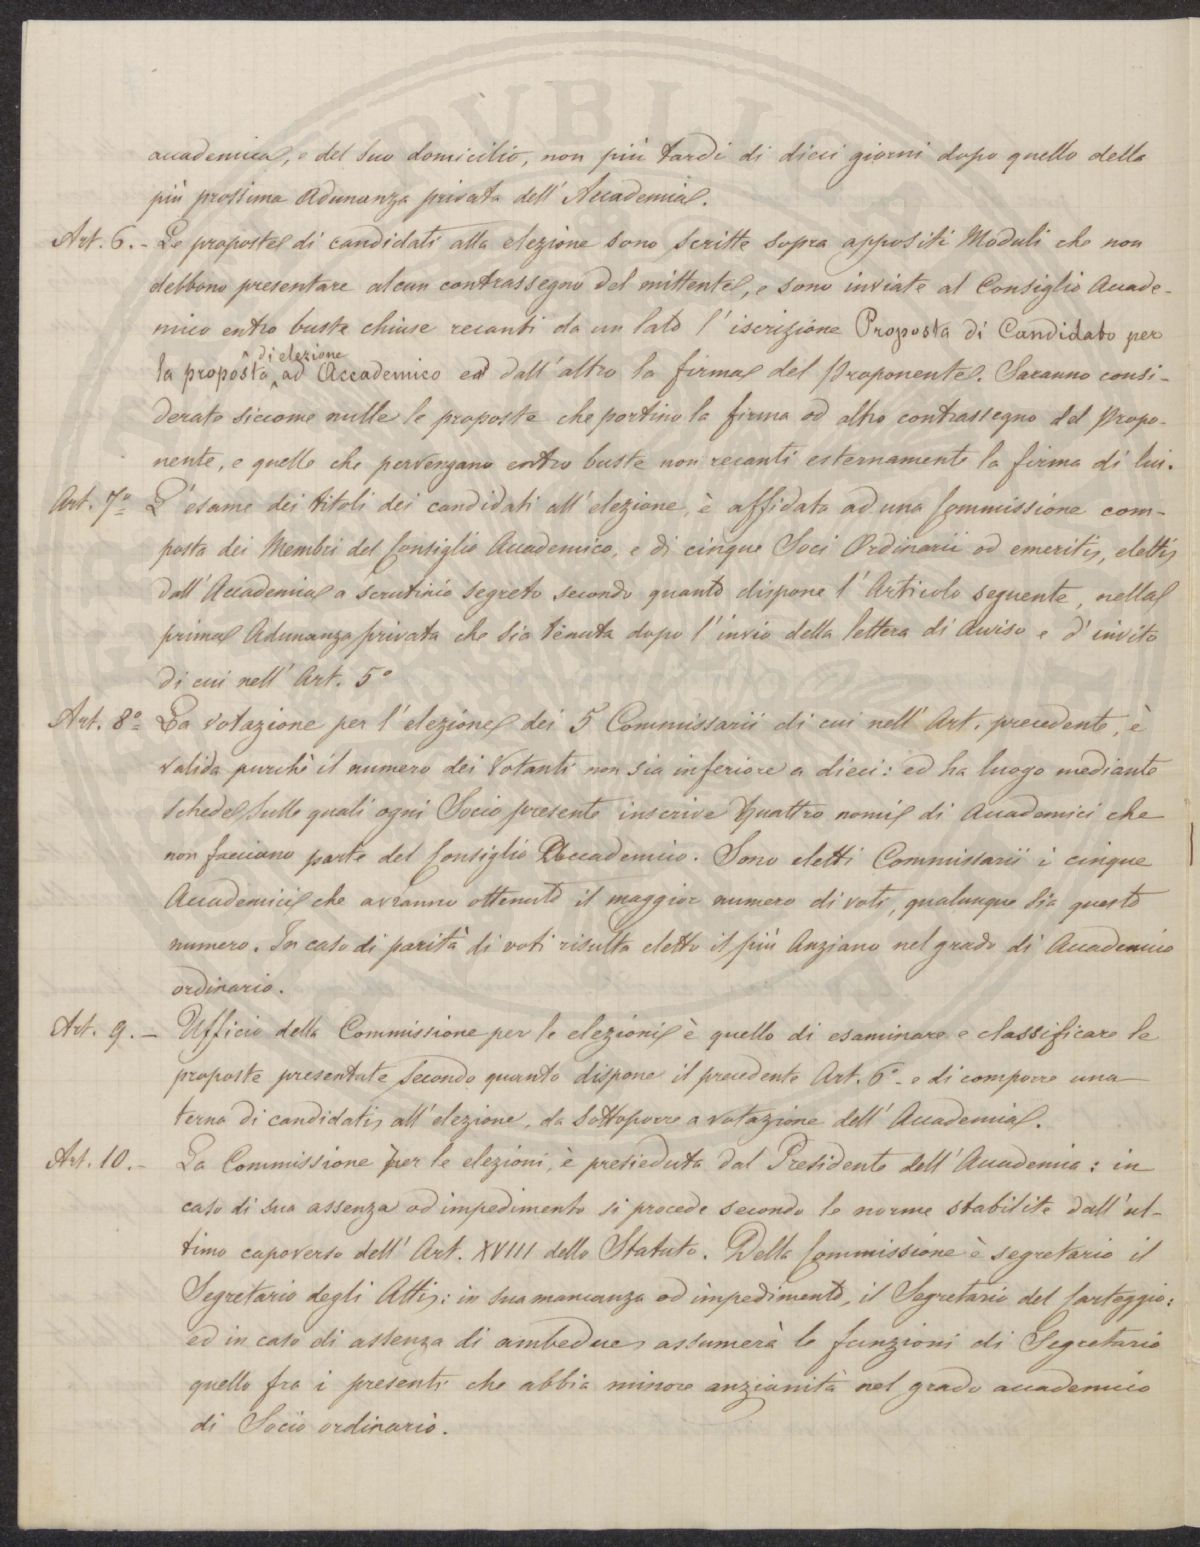 accademica, e del suo domicilio, non più tardi di dieci giorni dopo quello della
più prossima Adunanza privata dell' Accademia.
Art. 6. - Le proposte di candidati alla elezione sono scritte sopra appositi Moduli che non
debbono presentare alcun contrassegno del mittente, e sono inviate al Consiglio Accade-
mico entro buste chiuse recanti da un lato l' iscrizione Proposta di Candidato per
di elezione
la proposta ad Accademico ed dall' altro la firma del Proponente. Saranno consi-
derate siccome nulle le proposte che portino la firma od altro contrassegno del Propo-
nente, e quelle che pervengano entro buste non recanti esternamente la firma di lui.
Art. 7º L' esame dei titoli dei candidati all' elezione, è affidata ad una Commissione com-
posta dei Membri del Consiglio Accademico, e di cinque Soci Ordinarii od emeriti, eletti
dall' Accademia a scrutinio segreto secondo quanto dispone l' Articolo seguente, nella
prima Adunanza privata che sia tenuta dopo l' invio della lettera di Avviso e d' invito
di cui nell' Art. 5º
Art. 8º La votazione per l' elezione dei 5 Commissarii di cui nell' Art. precedente, è
valida purchè il numero dei Votanti non sia inferiore a dieci: ed ha luogo mediante
schede sulle quali ogni Socio presente inscrive quattro nomi di Accademici che
non facciano parte del Consiglio Accademico. Sono eletti Commissarii i cinque
Accademici che avranno ottenuto il maggior numero di voti, qualunque sia questo
numero. In caso di parità di voti risulta eletto il più Anziano nel grado di Accademico
ordinario.
Art. 9. - Ufficio della Commissione per le elezioni è quello di esaminare e classificare le
proposte presentate secondo quanto dispone il precedente Art. 6º - e di comporre una
terna di candidati all' elezione, da sottoporre a votazione dell' Accademia.
Art. 10. - La Commissione per le elezioni, è presieduta dal Presidente dell' Accademia: in
caso di sua assenza od impedimento si procede secondo le norme stabilite dall' ul-
timo capoverso dell' Art. XVIII dello Statuto. Della Commissione è segretario il
Segretario degli Atti: in sua mancanza od impedimento, il Segretario del Carteggio:
ed in caso di assenza di ambedue assumerà le funzioni di Segretario
quello fra i presenti che abbia minore anzianità nel grado accademico
di Socio ordinario.